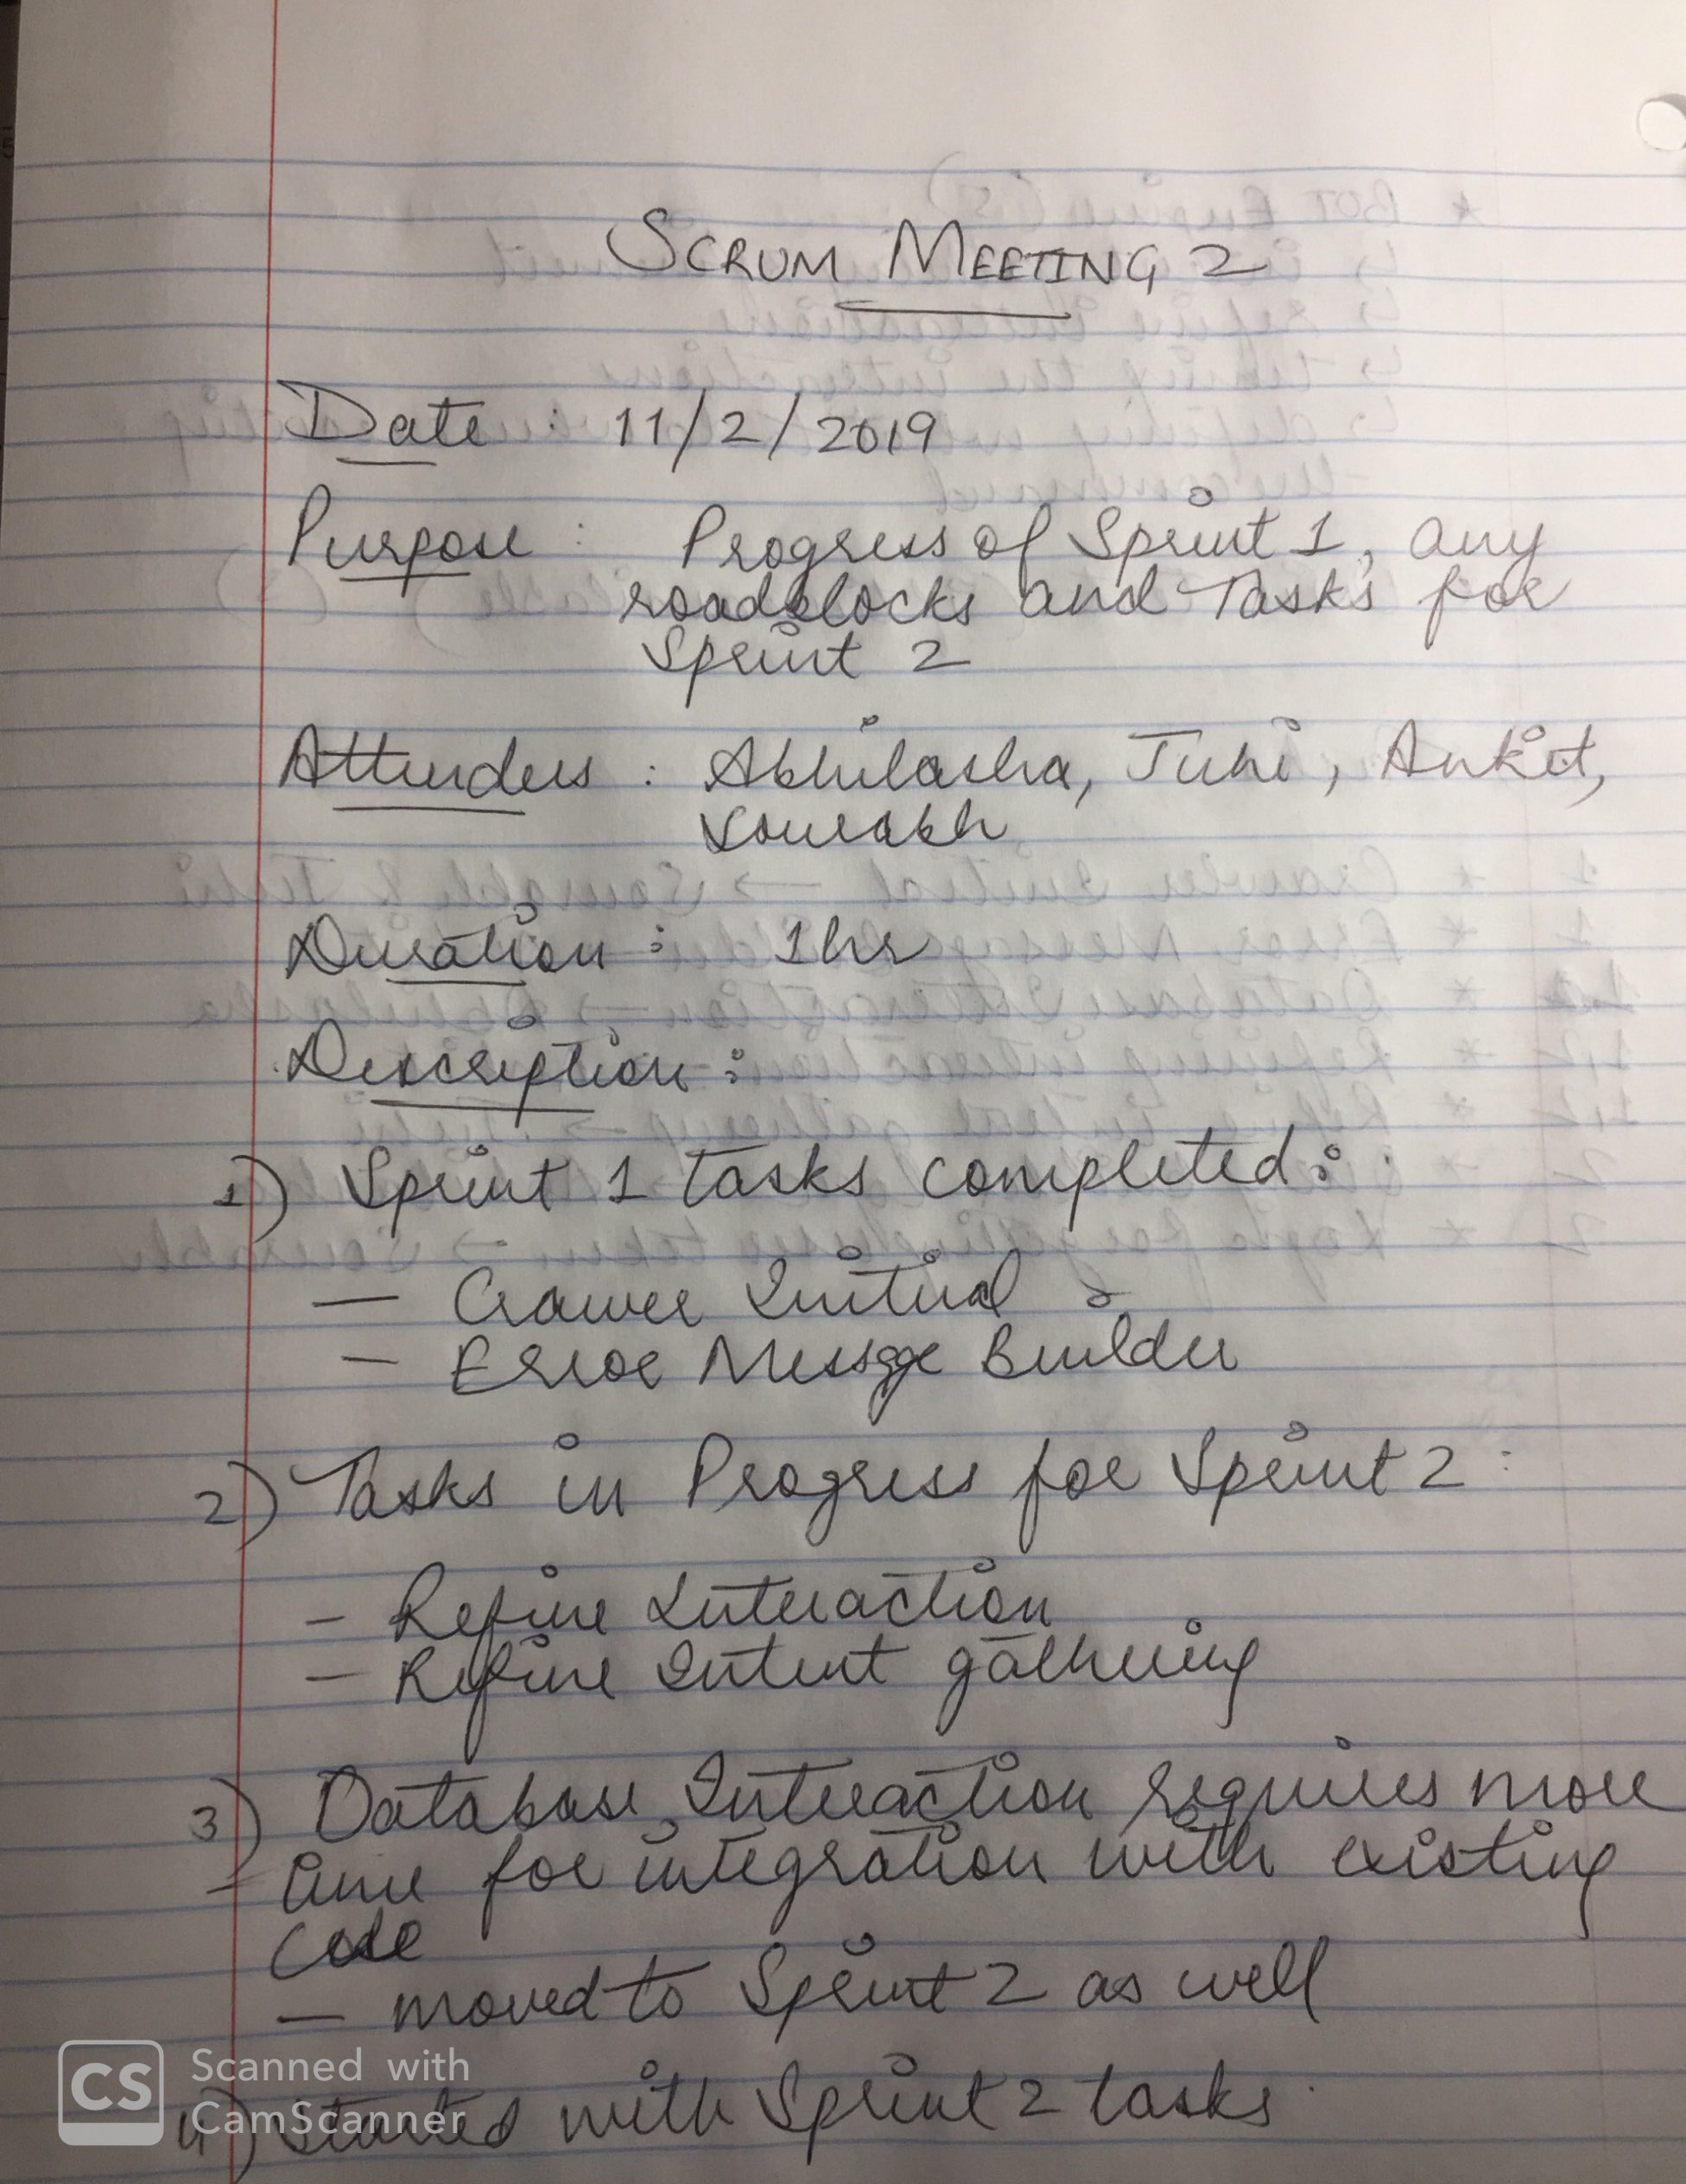 SCRUM MEETING 2
Date : 11/2/2019
Purpose : Progress of Sprint 1, any
roadblocks and Tasks for
Sprint 2
Attenders : Abhilasha, Juhi, Ankit,
Sourabh
Duration : 1hr
Description :
1) Sprint 1 tasks completed :
— Crawler Initial &
— Error Message Builder
2) Tasks in Progress for Sprint 2 :
— Refine Interaction
— Refine Intent gathering
3) Database Interaction requires more
time for integration with existing
code
— moved to Sprint 2 as well
4) Started with Sprint 2 tasks.
CS Scanned with
CamScanner